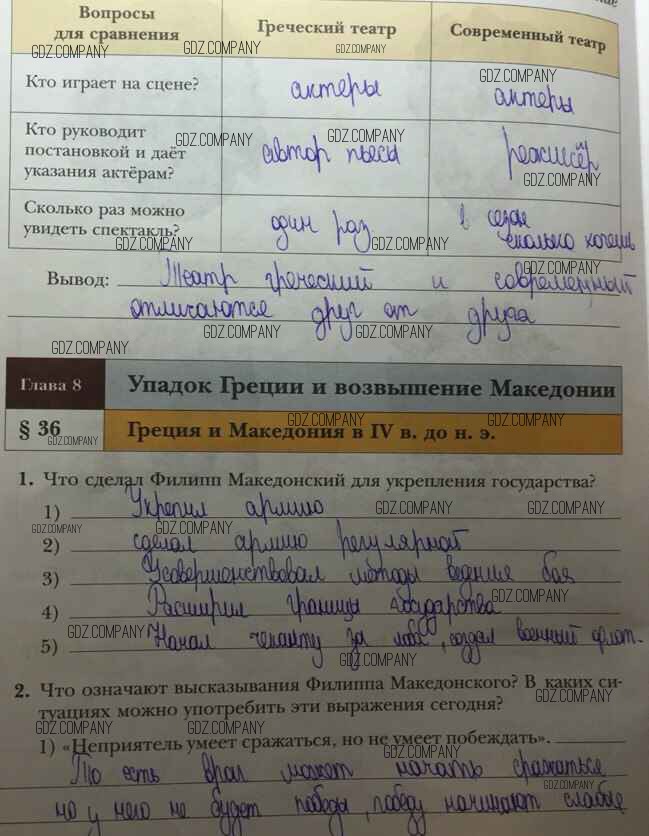 Вопросы
для сравнения
Греческий театр
Современный театр
Кто играет на сцене?
актеры
актеры
Кто руководит
постановкой и даёт
указания актёрам?
автор пьесы
режиссёр
Сколько раз можно
увидеть спектакль?
один раз
в сезон
сколько хочешь
Вывод: Театр греческий и современный
отличаются друг от друга
Глава 8
Упадок Греции и возвышение Македонии
§ 36
Греция и Македония в IV в. до н. э.
1. Что сделал Филипп Македонский для укрепления государства?
1) Укрепил армию
2) сделал армию регулярной
3) Усовершенствовал методы ведения боя
4) Расширил границы государства
5) Начал чеканку, создал военный флот.
2. Что означают высказывания Филиппа Македонского? В каких си-
туациях можно употребить эти выражения сегодня?
1) «Неприятель умеет сражаться, но не умеет побеждать».
То есть враг может начать сражаться
но у него не будет победы, победу начинают слабые
GDZ.COMPANY